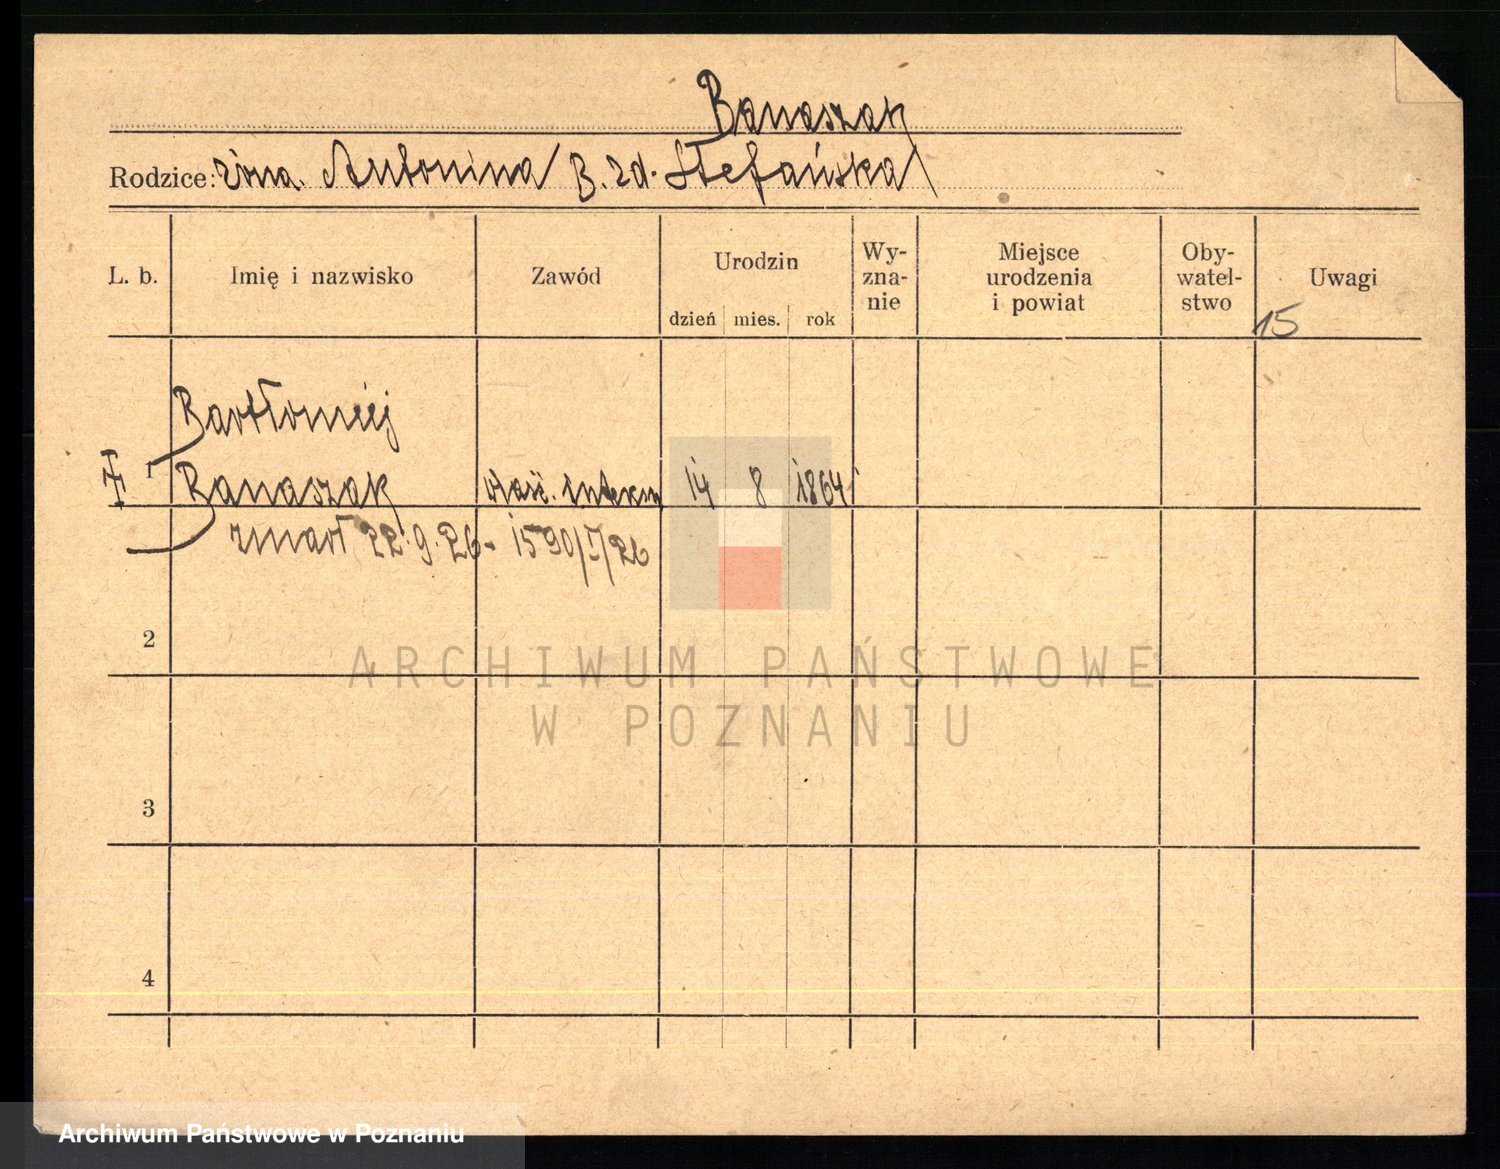 Banaszak
Rodzice: żona. Antonina B. zd. Stefańska
L. b. Imię i nazwisko Zawód Urodzin Wy-zna-nie Miejsce urodzenia i powiat Oby-watel-stwo Uwagi
dzień mies. rok
15
Bartłomiej
1 Banaszak właśc. 14 8 1864
zmarł 22.9.26 - 1590/I/26
2
3
4
ARCHIWUM PAŃSTWOWE
W POZNANIU
Archiwum Państwowe w Poznaniu